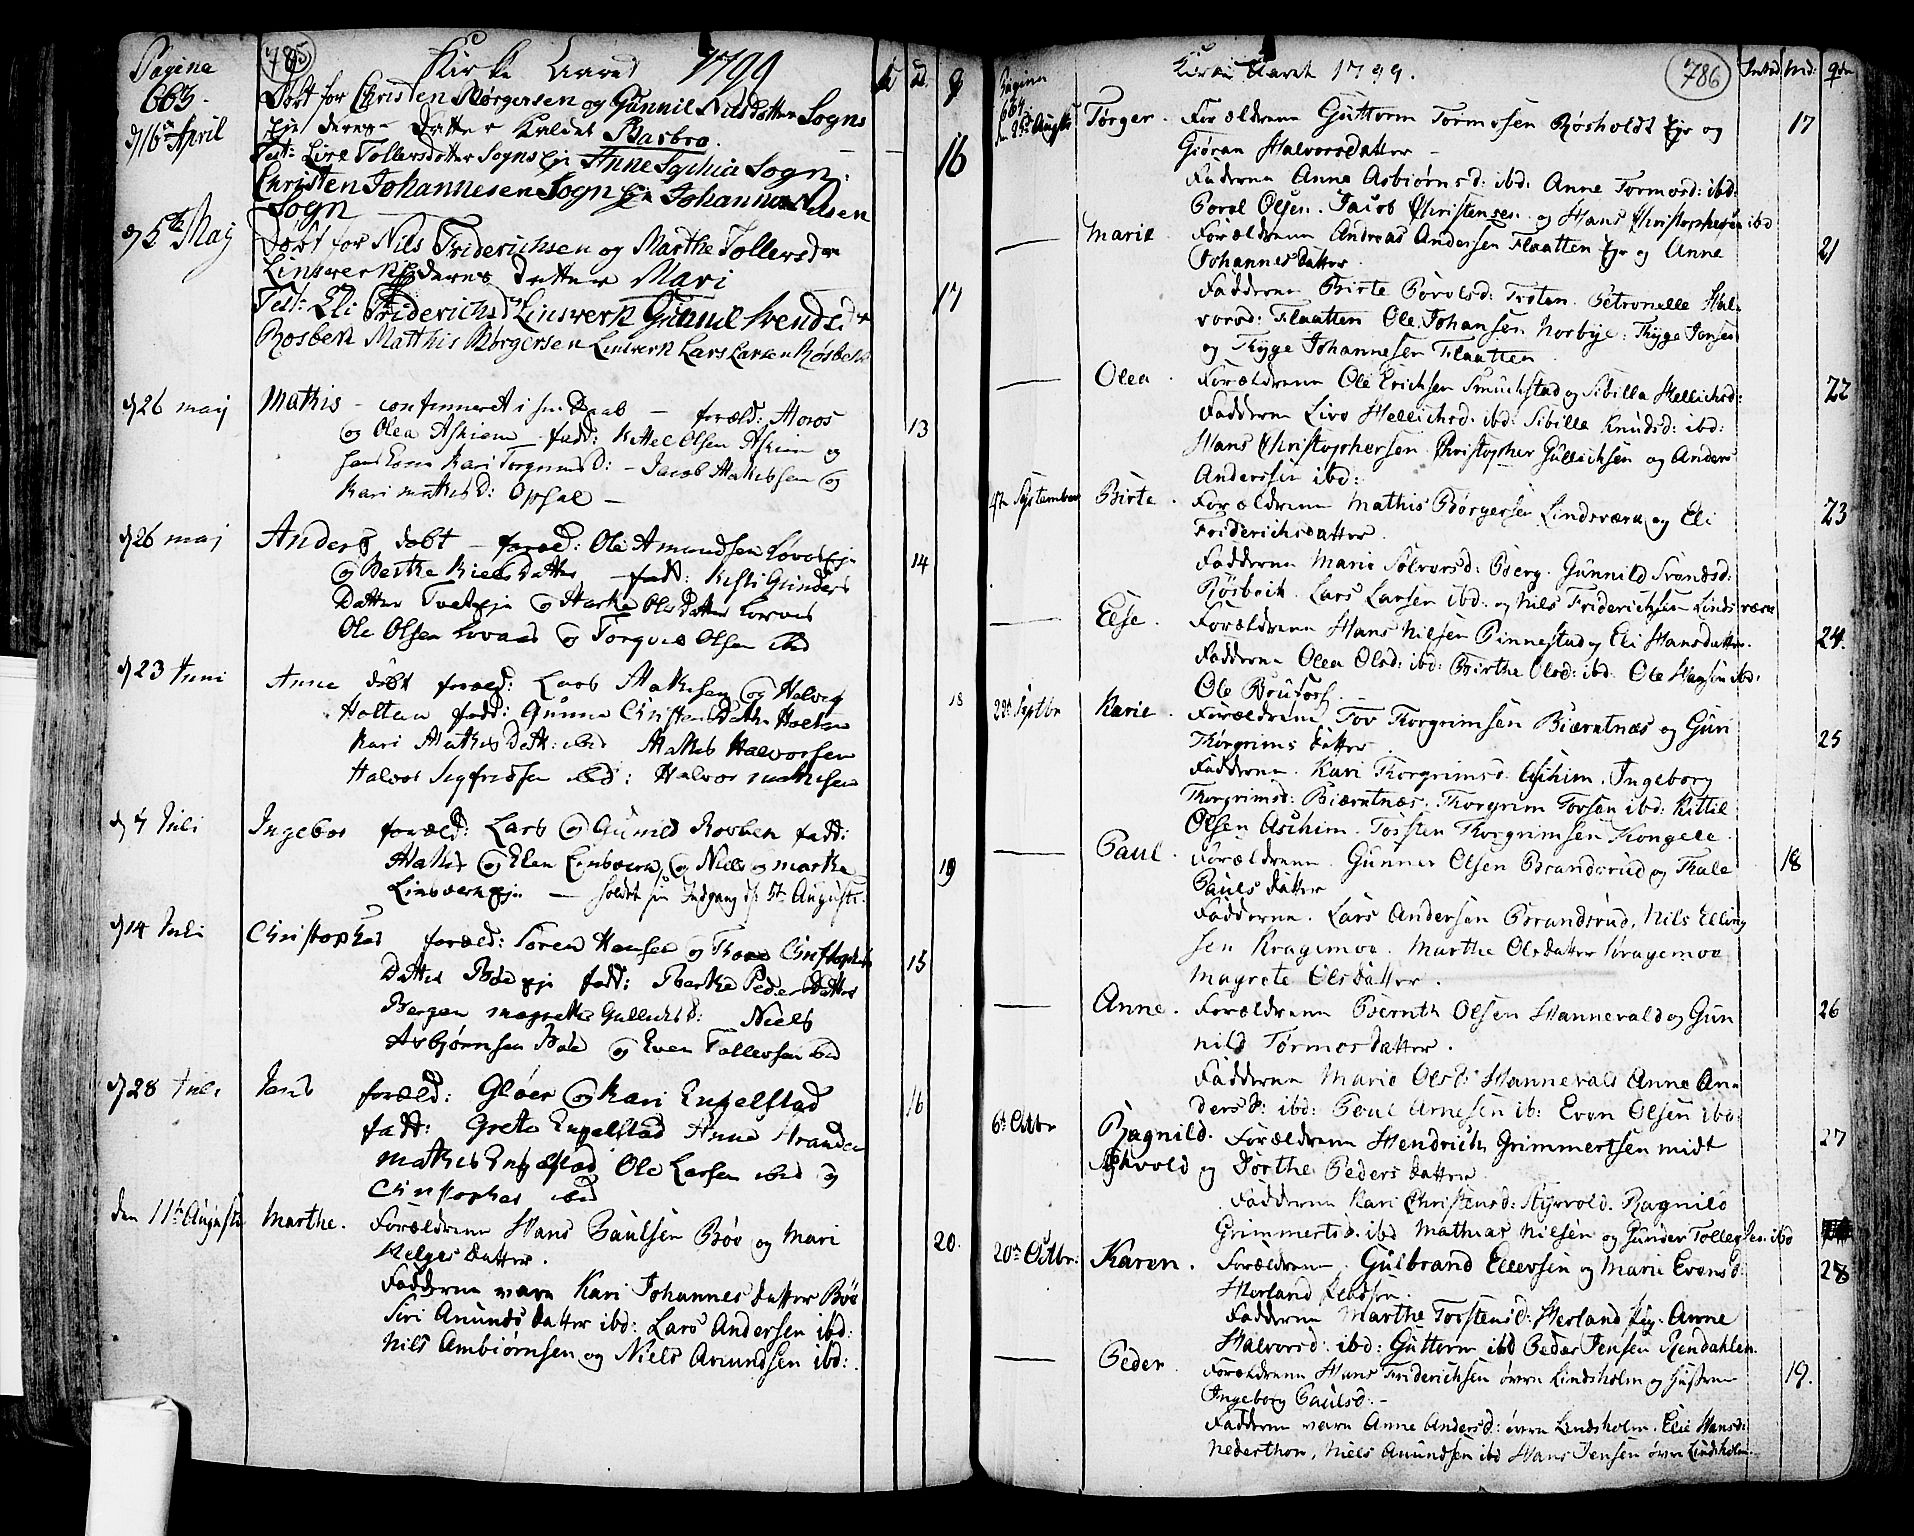 Pagina 785 Kirke Aaret 1799
663.
Døbt for Christen Børgersen og Gunnil Nilsdatter Sogns
d 16de April Eje deres Datter Kaldet Barbro. 16
Test: Live Tollersdatter Sogns Eje Anne Sophia Sogn:
Christen Johannesen Sogn Eje Johannes Nilsen
Sogn
d 5te Maj Døbt for Nils Friderichsen og Marthe Tollersdtr
Linsverk Eje deres datter Mari 17
Test: Eli Friderichsd Linsverk Gunnil Svends dtr
Rosbek Matthis Børgersen Linsverk Lars Larsen Røsbek
d 26 maij Mathis – confirmeret i sin Daab – foræld: Amos 13
og Olea Askiem fadd: Kittel Olsen Askim og
hans Kone Kari Torgrimsd: – Jacob Mathissen og
Kari mathisd: Opsal –
d 26 maj Anders døbt – foræld: Ole Amundsen Lovas eje 14
og Berthe Niels Datter – fadd: Kisti Gunders
Datter Tvet eje og Marthe Ols Datter Lovas
Ole Olsen Lovaas og Torgus Olsen ibid
d 23 Juni Anne døbt foræld: Lars Mathisen og Halvor 18
Holtan fadd: Gunne Christens Datter Holtan
Kari Mathis Datt: ibid Mathis Halvorsen
Halvor Segfredsen ibid: Halvor mathisen
d 7 Juli Ingebor foræld: Lars og Gunild Rosbek fadd: 19
Mathis og Elen Linsverk og Niels og marthe
Linsverk eje – holdt sin Indgang d 5te Augusti.
d 14 Juli Christopher foræld: Søren Hansen og Thore Christophers 15
Datter Boe eje fadd: Berthe Peders Datter
Bergan magrethe Gullichsd: Niels
Asbjørnsen Boe og Even Tollevsen ibid
d 28 Juli Jens foræld: Gløer og Kari Engelstad 16
fadd: Grete Engelstad Anne Stranden
Mathis Engelstad Ole Larsen ibid og
Christopher ibid
den 11te Augusti Marthe. Forældrene Hans Paulsen Bøe og Mari 20.
Helges datter.
Fadderne vare Kari Johannes datter Bøe
Siri Amunds datter ibd: Lars Andersen ibd:
Nils Ambiørnsen og Niels Amundsen ibd:
Pagina Kirke Aaret 1799. 786
664
25de Augtt Tørger. Forældrene Guttorm Tormosen Røsholdt Eje og 17
Giøran Halvorsdatter –
Fadderne Anne Asbiørnsd: ibd: Anne Tormosd: ibd:
Povel Olsen. Jacob Christensen og Hans Christophersen ibid
Marie Forældrene Andreas Andersen Flaatten Eje og Anne 21
Johannesdatter.
Fadderne Birte Povelsd: Traten. Petronelle Hal-
vorsd: Flaatten Ole Johansen Norbye: Thyge Jensen
og Thyge Johannesen Flaatten.
Olea. Forældrene Ole Erichsen Smuchstad og Sibilla Hellichsd: 22
Fadderne Live Hellichsd: ibd: Sibille Knudsd: ibd:
Hans Christophersen Christopher Gullichsen og Anders
Anderssen ibd:
September Birte. Forældrene Mathis Børgersen Lindsværk og Eli 23
Friderichsdatter.
Fadderne Marie Sølvorsd: Berg. Gunnild Svendsd:
Røsbeck. Lars Larsen ibd. og Nils Friderichsen Lindsværk
Else. Forældrene Hans Nilsen Pinnestad og Eli Hansdatter. 24.
Fadderne Olea Olsd: ibd: Birthe Olsd: ibd. Ole Hansen ibd:
Ole Boufoss.
29de Septbr Karie. Forældrene Tov Thorgrimsen Biørntnæs og Guri 25
Thorgrims datter.
Fadderne. Kari Thorgrimsd: Aschim. Ingeborg
Thorgrimsd: Biørntnæs. Thorgrim Torsen ibd: Kittil
Olsen Aschim. Torsten Thorgrimsen Kongele.
Paul. Forældrene. Gunner Olsen Brandsrud og Thale 18
Pauls datter
Fadderne. Lars Andersen Brandsrud. Nils Elling
sen Kragemoe. Marthe Olsdatter Kragemoe
Magrete Olsdatter.
Anne. Forældrene Bernth Olsen Hannevald og Gun 26
nild Tormosdatter.
Fadderne Marie Olsd: Hannevald Anne An-
dersd: ibd: Poul Arnesen ib: Even Olsen ibd:
6te Octbr Ragnild. Forældrene Hendrich Grimmertsen midt 27
Styrvold og Dorthe Peders datter.
Fadderne Kari Christensd: Styrvold. Ragnild
Grimmertsd. ibd Mathias Nilsen og Gunder Tollefsen ibd
20de Octbr: Karen. Forældrene. Gulbrand Ellevsen og Marie Evensd: 28
Herland
Fadderne Marthe Torstensd: Herland Eje. Anne
Halvorsd: ibd: Guttorm ibd Peder Jensen Rendahlen.
Peder Forældrene Hans Friderichsen øvre Lindsholm og Hustrue 19.
Ingeborg Paulsd: –
Fadderne vare Anne Andersd: øvre Lindsholm. Elie Hansd:
Nederthon, Niels Amundsen ibd Hans Jensen øvre Lindsholm.